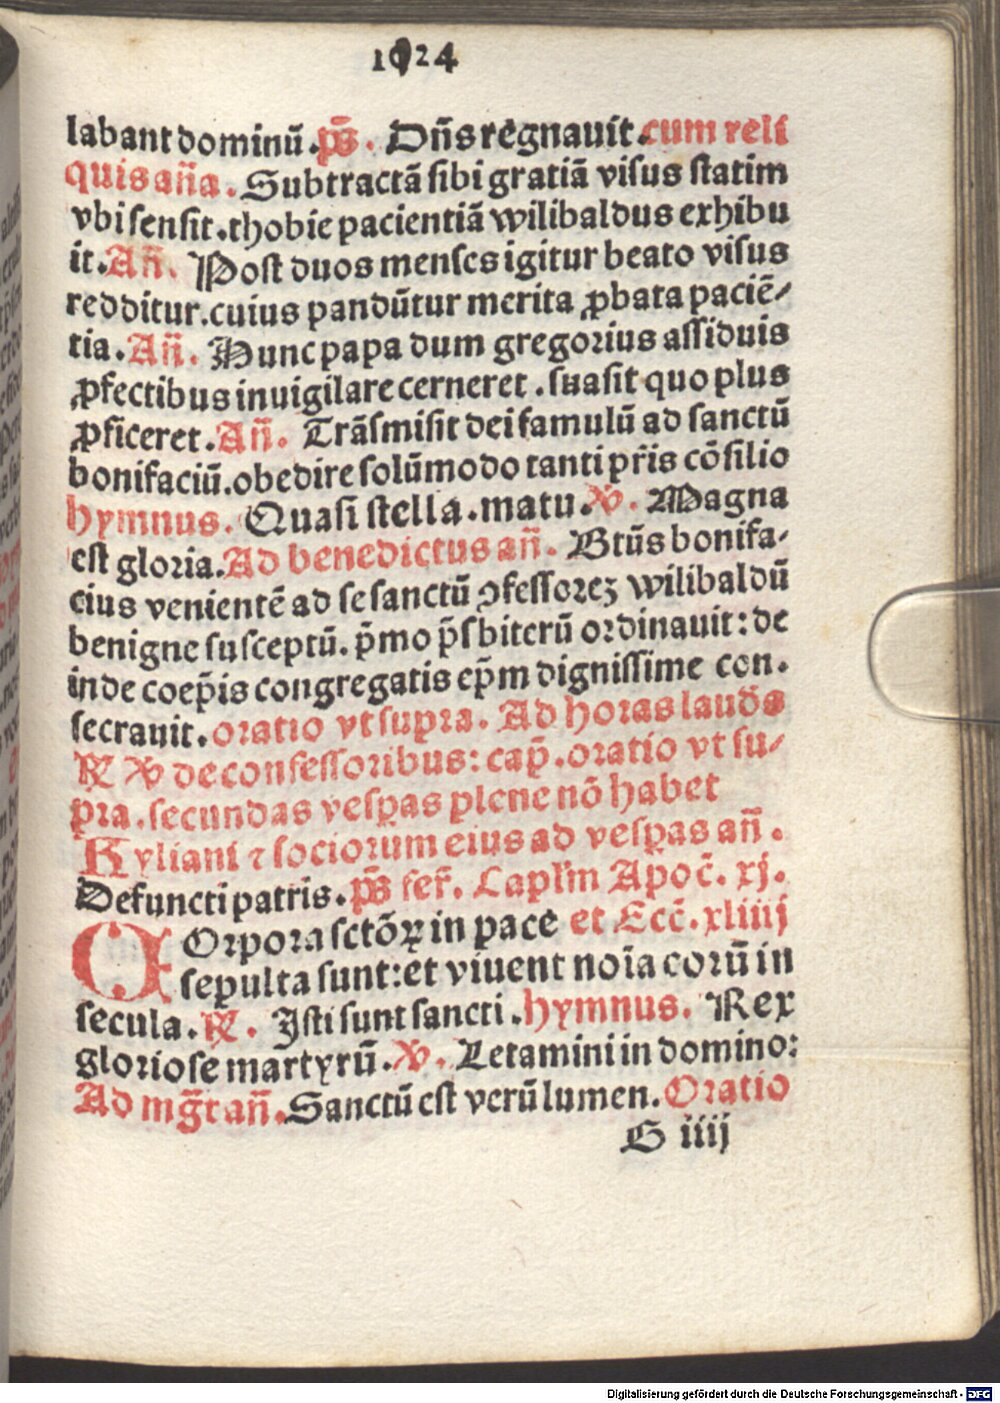 1024
labant dominū. p̄s. Dn̄s regnauit. cum reli
quis an̄a. Subtractā sibi gratiā visus statim
vbi sensit. thobie pacientiā wilibaldus exhibu
it. An̄. Post duos menses igitur beato visus
redditur. cuius pandūtur merita ꝓbata paciē⸗
tia. An̄. Hunc papa dum gregorius assiduis
ꝓfectibus inuigilare cerneret. suasit quo plus
ꝓficeret. An̄. Trāsmisit dei famulū ad sanctū
bonifaciū. obedire solūmodo tanti pr̄is cōsilio
hymnus. Quasi stella. matu. ℣. Magna
est gloria. Ad benedictus an̄. Btūs bonifa⸗
cius venientē ad se sanctū ꝯfessorez wilibaldū
benigne susceptū. p̄mo p̄sbiterū ordinauit: de
inde coep̄is congregatis ep̄m dignissime con.
secrauit. oratio vt supra. Ad horas laudēs
℟ ℣ de confessoribus: cap̄. oratio vt su⸗
pra. secundas vesꝑas plene nō habet
Kyliani ⁊ sociorum eius ad vesꝑas an̄.
Defuncti patris. p̄s fer̄. Capl̄m Apoc̄. xj.
COrpora sctōꝝ in pace et Ecc̄. xliiij
sepulta sunt: et viuent noīa eorū in
secula. ℟. Isti sunt sancti. hymnus. Rex
gloriose martyrū. ℣. Letamini in domino:
Ad mḡt an̄. Sanctū est verū lumen. Oratio
G iiij
Digitalisierung gefördert durch die Deutsche Forschungsgemeinschaft - DFG